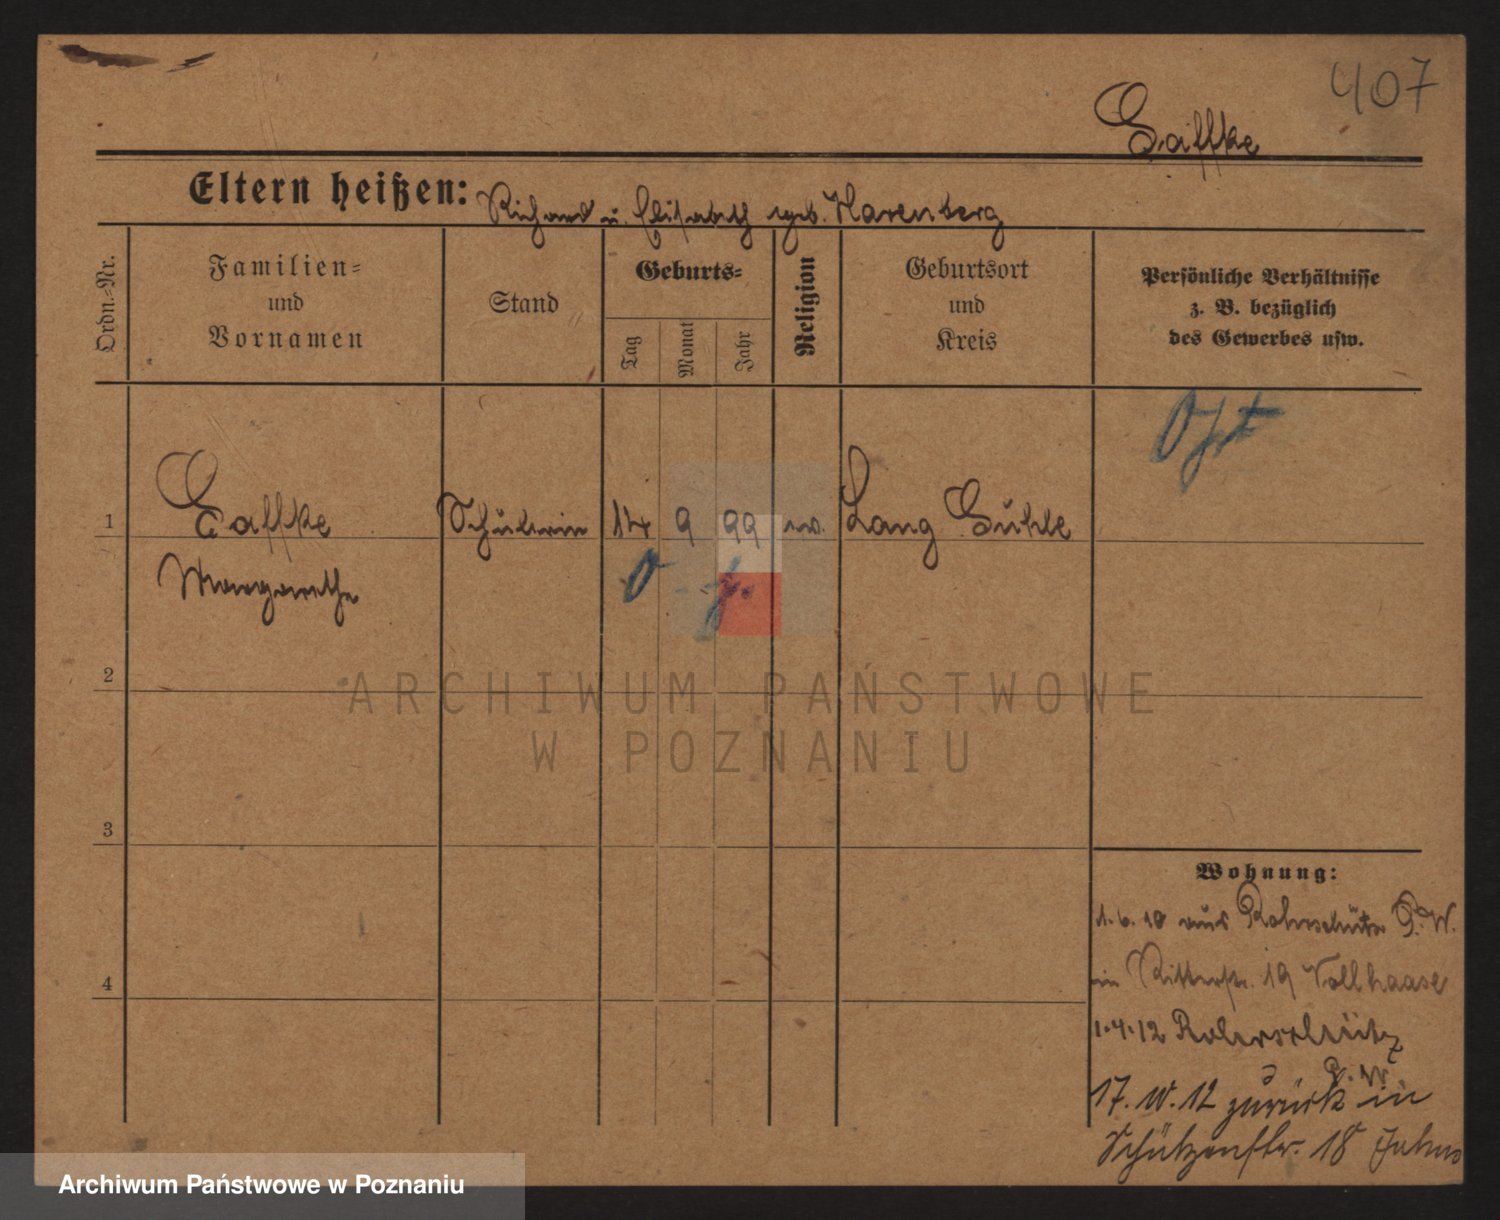 407
Gaffke
Eltern heißen: Richard u. Elisabeth geb. Harenberg
Ordn.-Nr.
Familien-
und
Vornamen
Stand
Geburts-
Tag
Monat
Jahr
Religion
Geburtsort
und
Kreis
Persönliche Verhältnisse
z. B. bezüglich
des Gewerbes usw.
1
Gaffke
Schülerin
14
9
99
ev.
Lang Guhle
Margarethe
2
ARCHIWUM PAŃSTWOWE
W POZNANIU
3
Wohnung:
1.6.10 aus Rohrschütz P.W.
in Ritterstr. 19 Vollhaase
4
1.4.12 Rohrschütz
P.W.
17. 10. 12 zurück in
Schützenstr. 18
Archiwum Państwowe w Poznaniu